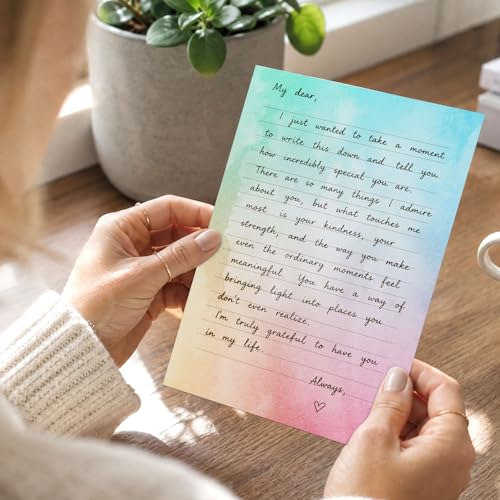 My dear,
I just wanted to take a moment
to write this down and tell you
how incredibly special you are.
There are so many things I admire
about you, but what touches me
most is your kindness, your
strength, and the way you make
even the ordinary moments feel
meaningful. You have a way of
bringing light into places you
don't even realize.
I'm truly grateful to have you
in my life.
Always,